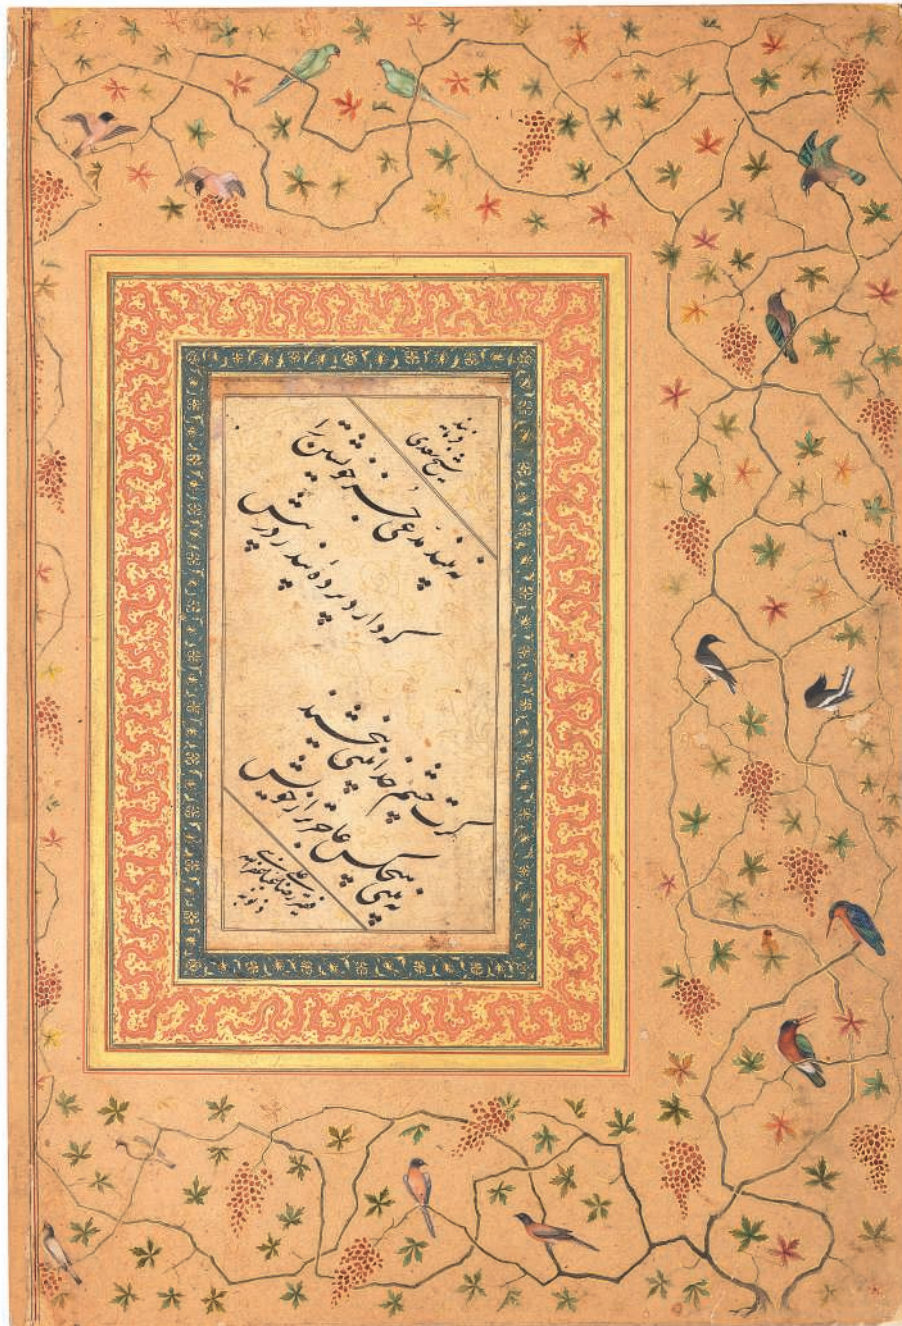 شیخ سعدی
نه بیند مدعی جز خویشتن را
که دارد پردهٔ پندار در پیش
گرت چشم خدا بینی ببخشند
نه بینی هیچکس عاجزتر از خویش
فقیر
ذنوبه